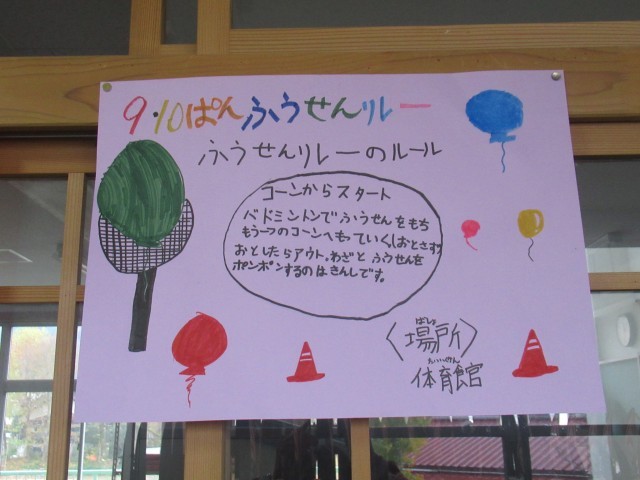 9・10ぱんふうせんリレー
ふうせんリレーのルール
コーンからスタート
バドミントンでふうせんをもち
もう一つのコーンへもっていく(おとさず)
おとしたらアウト。わざとふうせんを
ポンポンするのはきんしです。
ばしょ
〈場所〉
たいいくかん
体育館